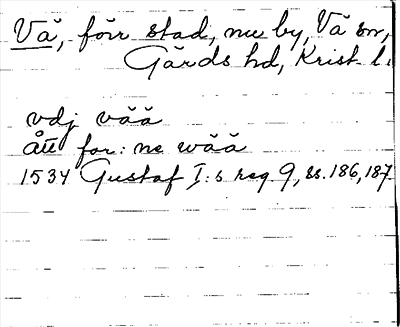 Vä, förr stad, nu by, Vä sn,
Gärds hd, Krist l.
vdj vää
ått for: ne wää
1534 Gustaf I:s reg 9, ss. 186, 187